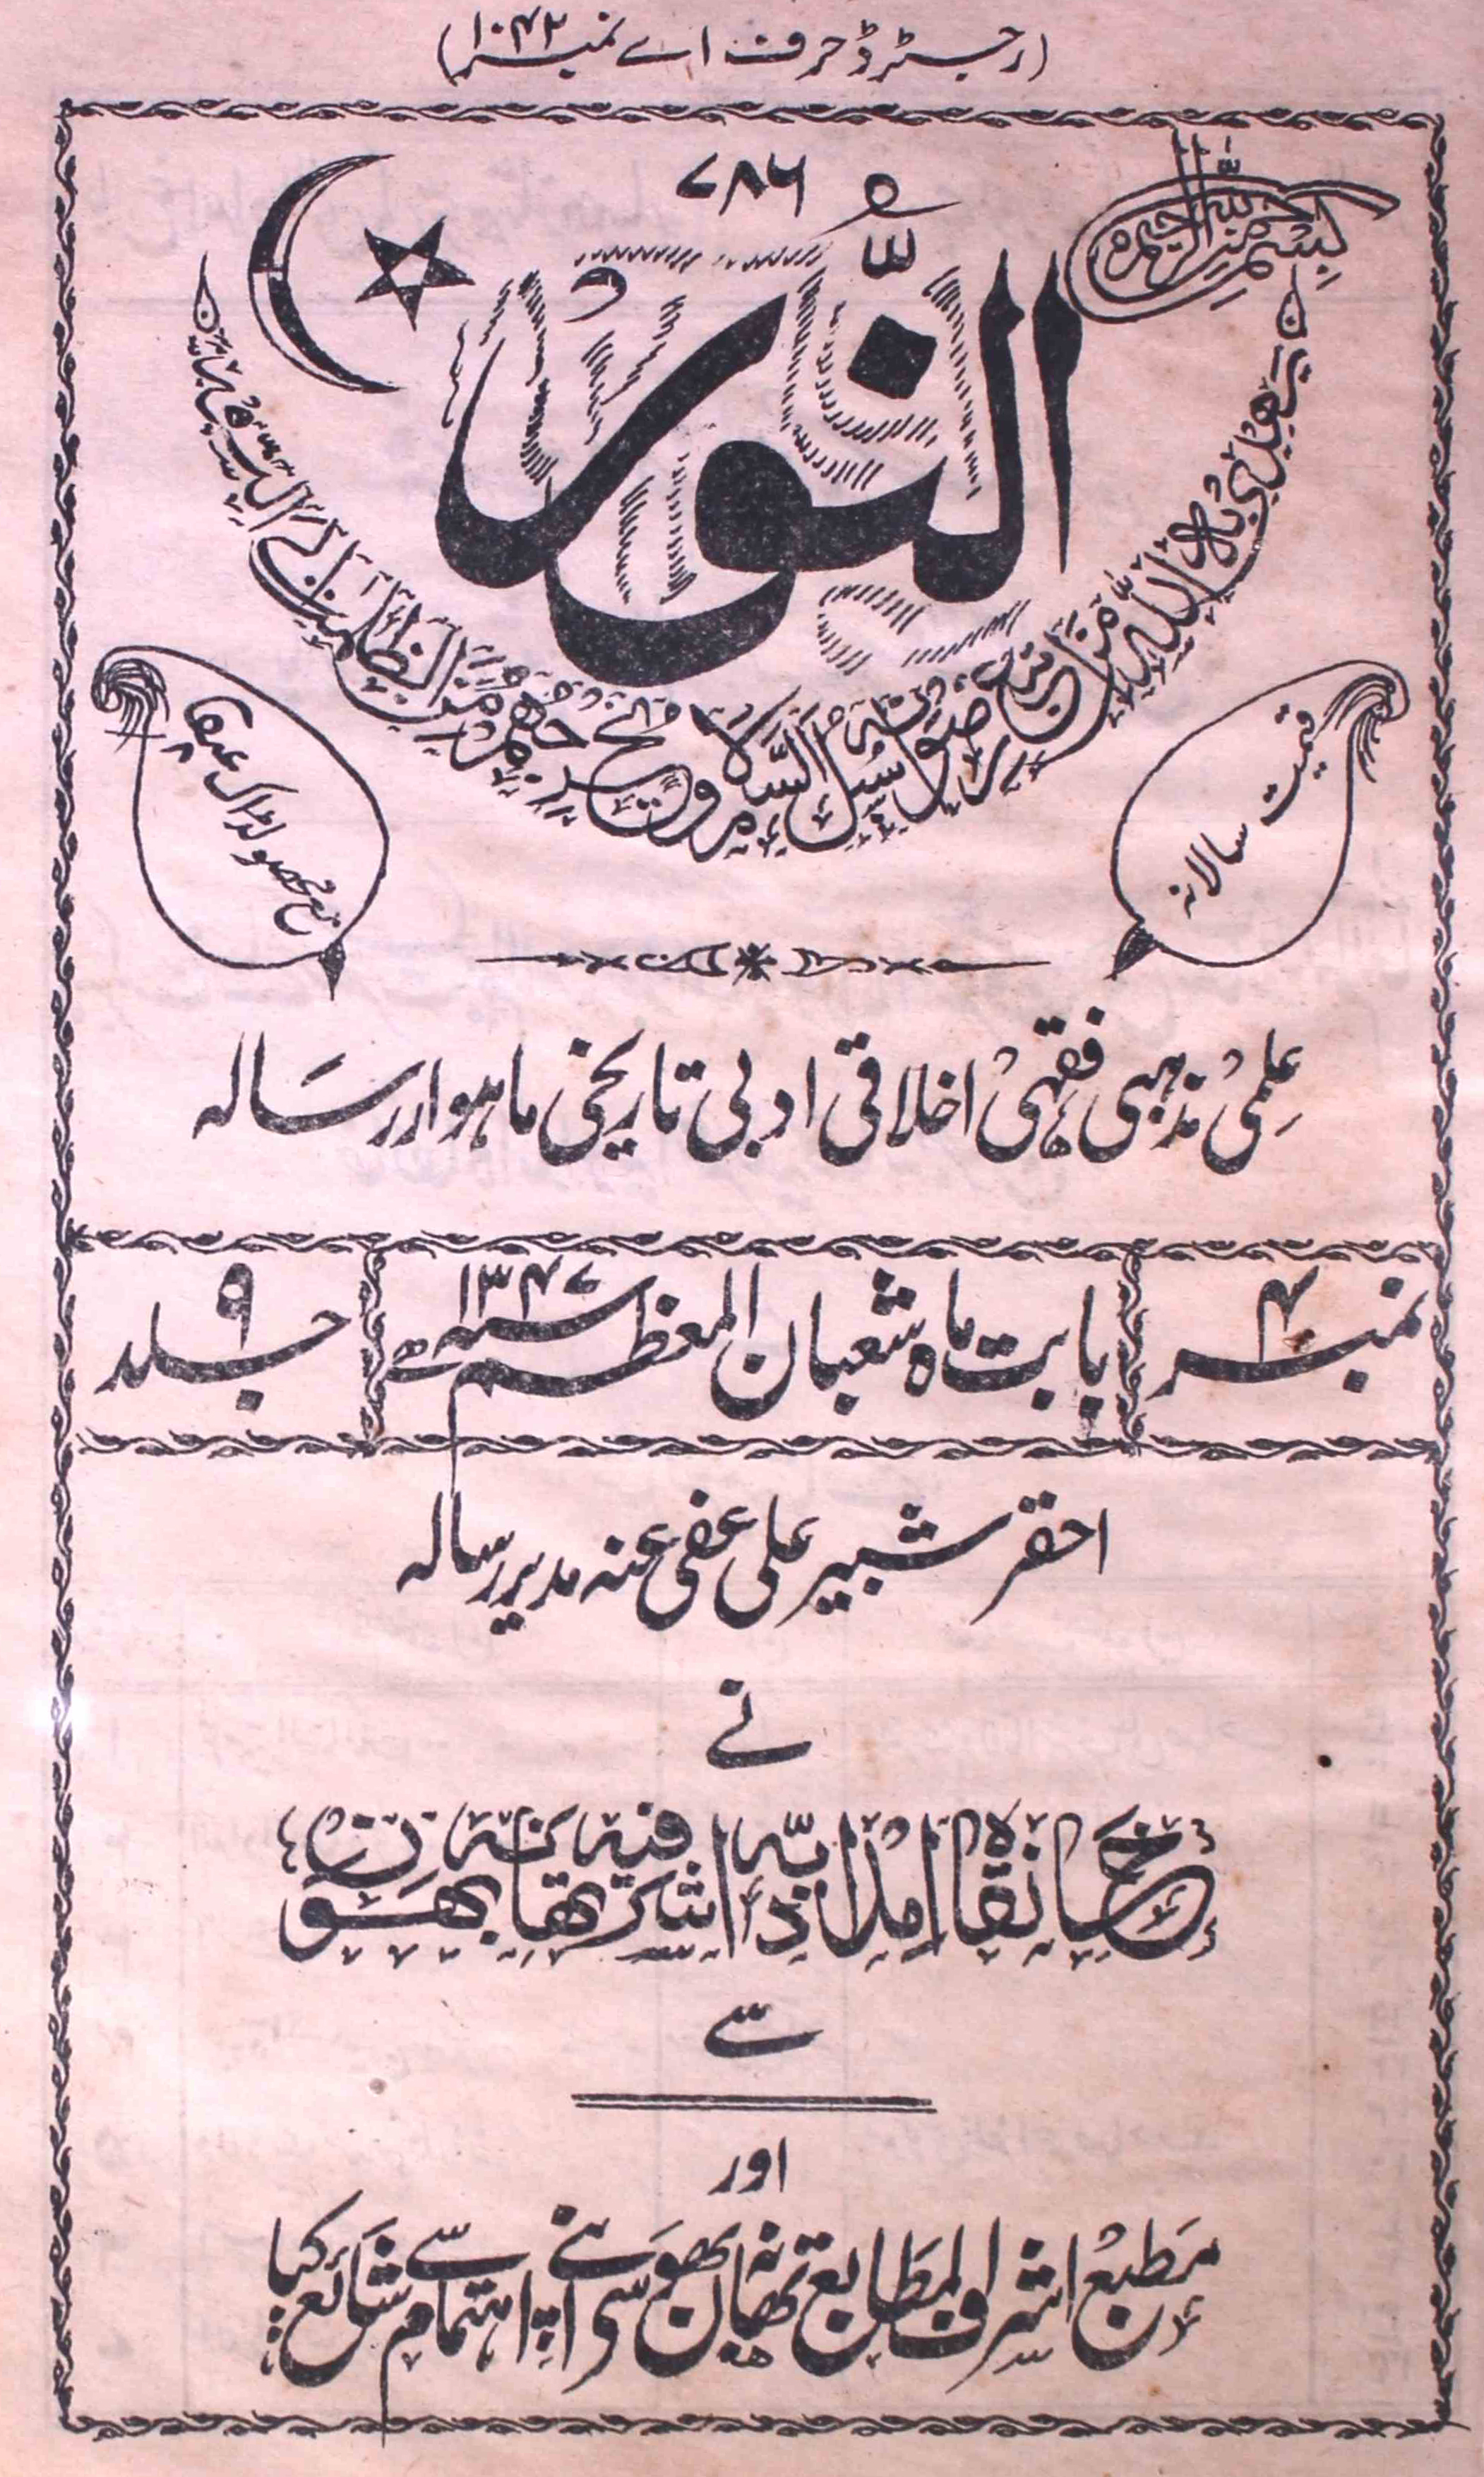 (رجسٹرڈ حرف اے نمبر ۱۰۴۲)
۷۸۶
بِسْمِ اللّٰهِ الرَّحْمٰنِ الرَّحِيْمِ
النُّور
يَهْدِيْ بِهِ اللّٰهُ مَنِ اتَّبَعَ رِضْوَانَهٗ سُبُلَ السَّلَامِ وَيُخْرِجُهُمْ مِّنَ الظُّلُمٰتِ اِلَى النُّوْرِ
قیمت سالانہ
مع محصولڈاک
عِلمیْ مذہبی فقہیْ اخلاقی ادبی تاریخی ماہوار رسَالہ
نمبر ۴
بابت ماہ شعبان المعظم سنہ ۱۳۴۷ھ
جلد ۹
احقر شبیر علی عفی عنہ مدیر رسالہ
نے
خانقاہ امدادیہ اشرفیہ تھانہ بھون
سے
اور
مطبع اشرف المطابع تھانہ بھون سے اپنے اہتمام سے شائع کیا